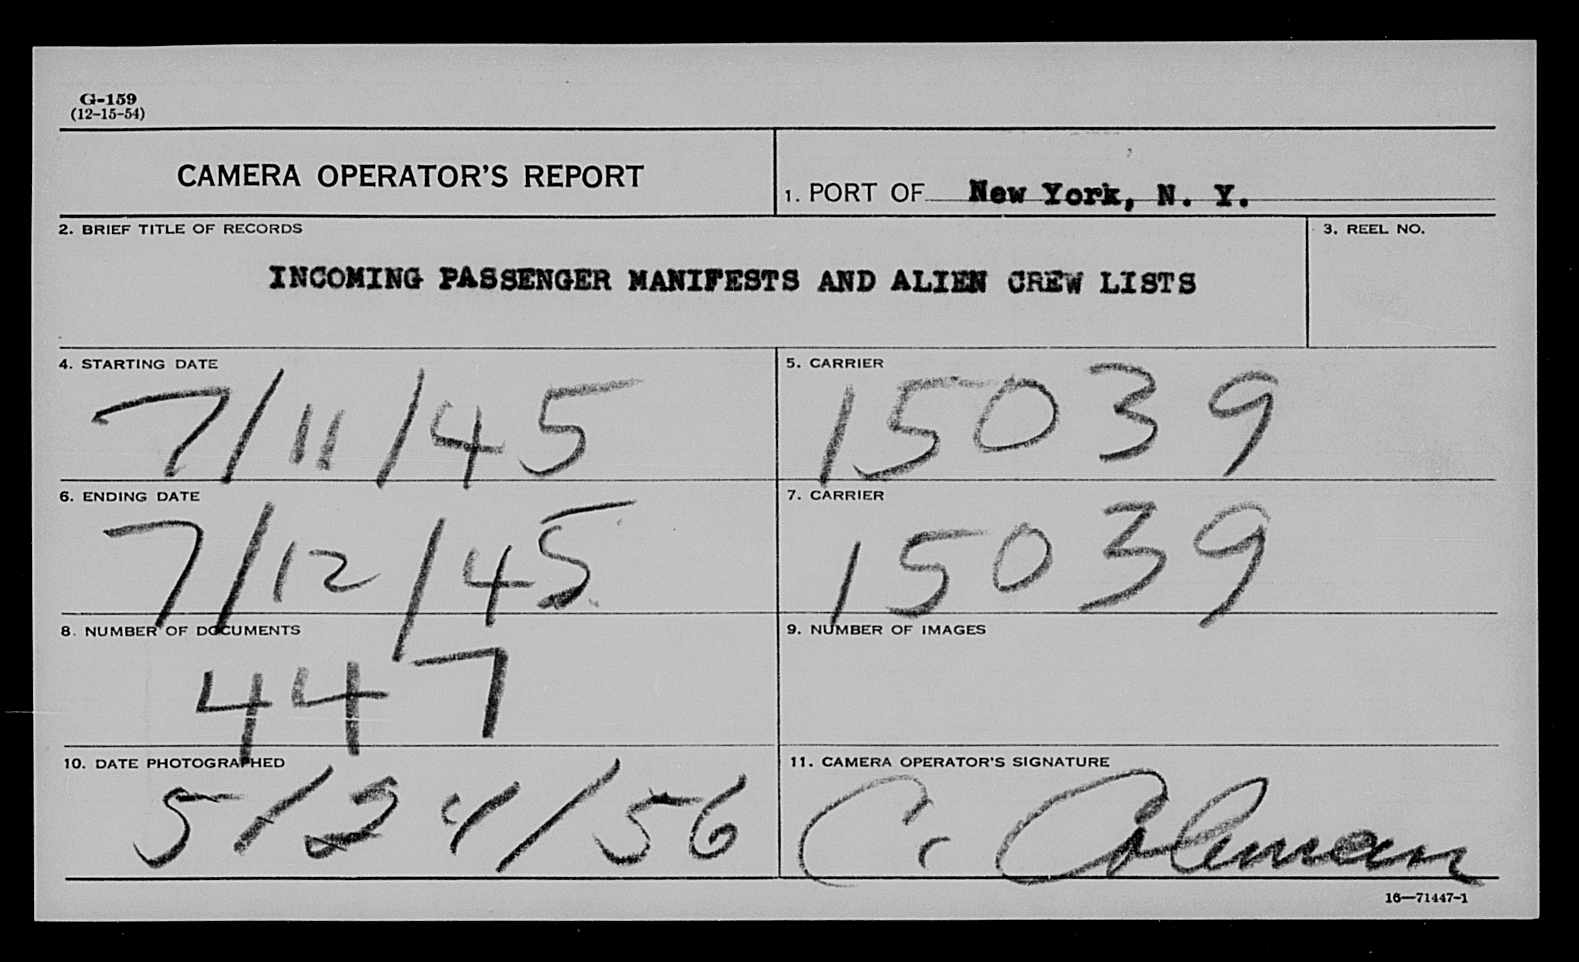 G-159
(12-15-54)
CAMERA OPERATOR'S REPORT
1. PORT OF New York, N. Y.
2. BRIEF TITLE OF RECORDS
3. REEL NO.
INCOMING PASSENGER MANIFESTS AND ALIEN CREW LISTS
4. STARTING DATE
5. CARRIER
7/11/45
15039
6. ENDING DATE
7. CARRIER
7/12/45
15039
8. NUMBER OF DOCUMENTS
9. NUMBER OF IMAGES
447
10. DATE PHOTOGRAPHED
11. CAMERA OPERATOR'S SIGNATURE
5/24/56
C. Coleman
16—71447-1